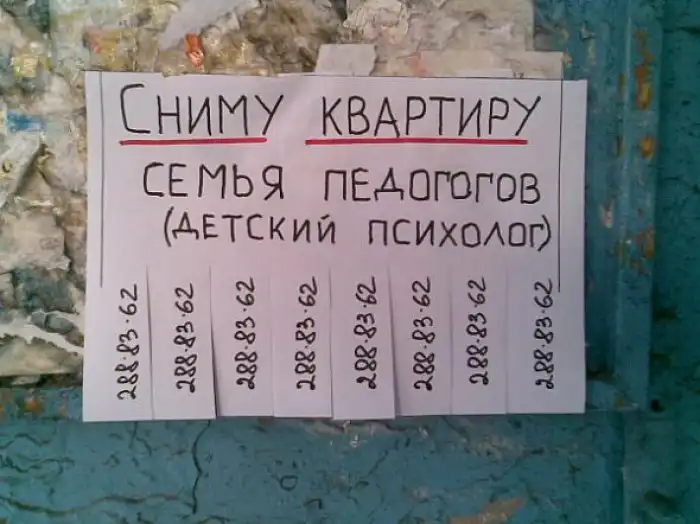 Сниму квартиру
семья педогогов
(детский психолог)
288·83·62
288·83·62
288·83·62
288·83·62
288·83·62
288·83·62
288·83·62
288·83·62